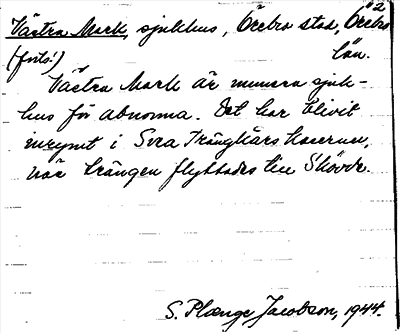 2
Västra Mark, sjukhus, Örebro stad, Örebro
(forts.) län.
Västra Mark är numera sjuk-
hus för abnorma. Det har blivit
inrymt i Svea Trängkårs kaserner,
när trängen flyttades till Skövde.
S. Plænge Jacobson, 1944.